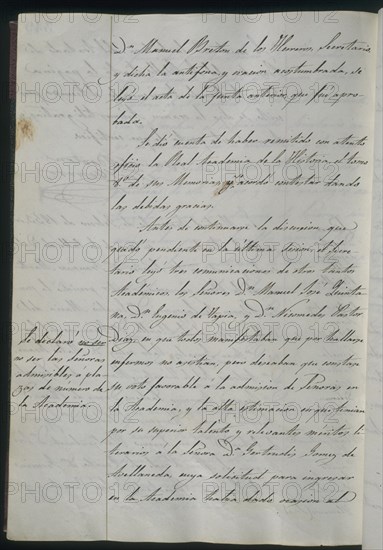 Dn. Manuel Breton de los Herreros, Secretario
y dicha la antifona y oracion acostumbrada, se
leyó el acta de la junta anterior que fué apro-
bada.
Se dió cuenta de haber remitido con atento
oficio la Real Academia de la Historia el tomo
8º de sus Memorias, y acordó contestar dando
las debidas gracias.
Antes de continuarse la discusion, que
quedó pendiente en la última sesion, el Secre-
tario leyó tres comunicaciones de otros tantos
Académicos, los Señores Dn. Manuel José Quinta
na, Dn. Eugenio de Tapia, y Dn. Nicomedes Pastor
Diaz, en que todos manifestaban que por hallarse
enfermos no asistian, pero deseaban que constase
su voto favorable á la admision de Señoras en
la Academia, y la alta estimacion en que tenian
por su superior talento y relevantes méritos li
terarios á la Señora Dª Gertrudis Gomez de
Avellaneda cuya solicitud para ingresar
en la Academia habia dado ocasion al
Se declaró no ser
no ser las Señoras
admisibles a pla-
zas de número de
la Academia.
PHOTO12